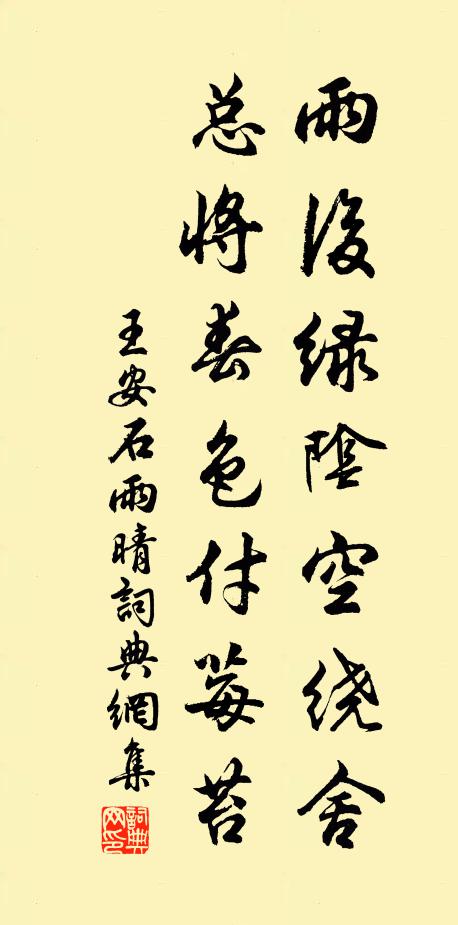 雨後绿陰空绕舍
总將春色付莓苔
王安石雨晴詞典網集
詞典网印